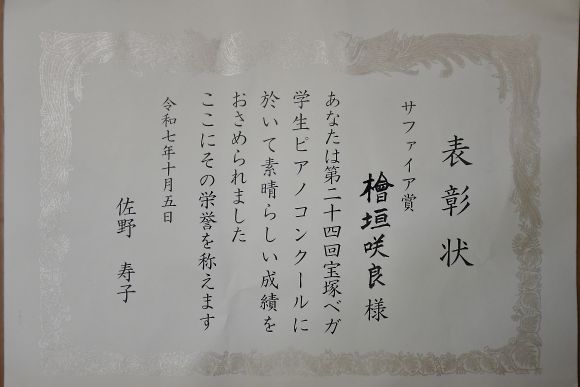 表彰状
サファイア賞
檜垣咲良様
あなたは第二十四回宝塚ベガ
学生ピアノコンクールに
於いて素晴らしい成績を
おさめられました
ここにその栄誉を称えます
令和七年十月五日
佐野 寿子